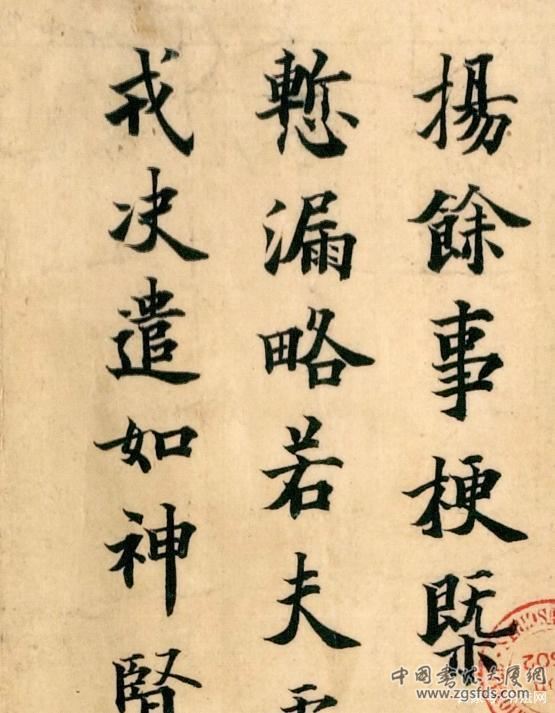 揚餘事梗槩
慙漏略若夫
戎决遣如神賢
中國書法大厦網
www.zgsfds.com